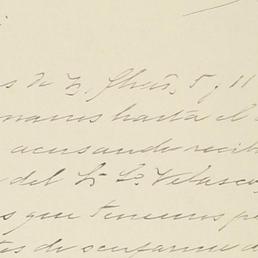 s de
5 y 11
manos hasta el
acusando recib
del Sr Dn Velasco
s que tenemos p
tes de ocuparme d